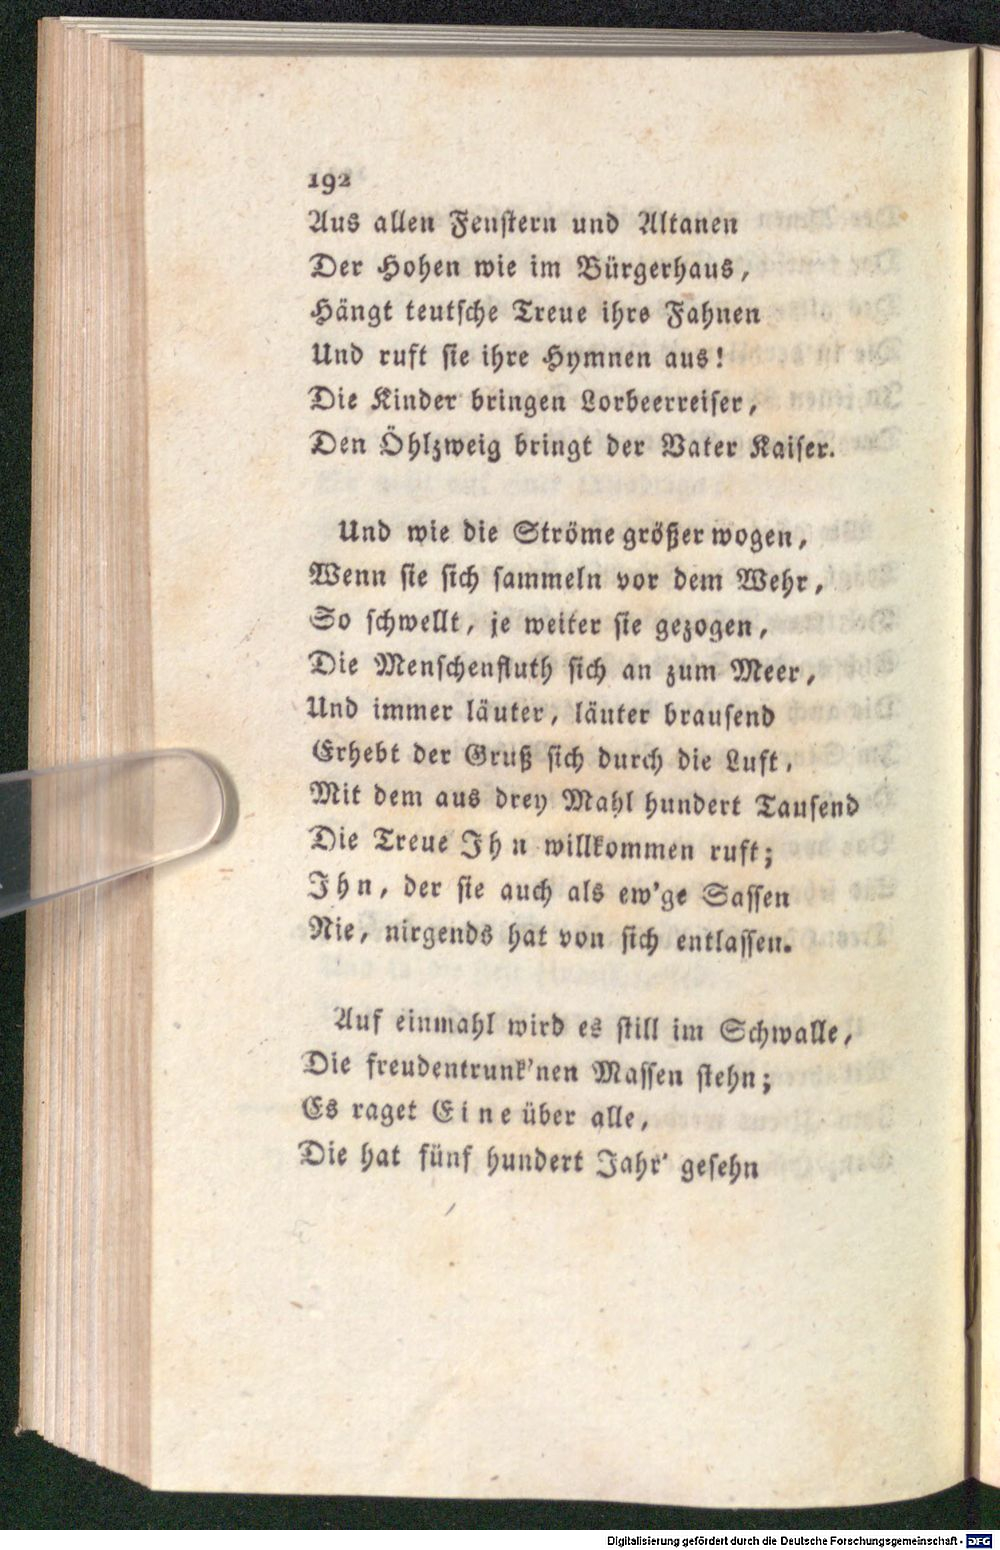 192
Aus allen Fenstern und Altanen
Der Hohen wie im Bürgerhaus,
Hängt teutsche Treue ihre Fahnen
Und ruft sie ihre Hymnen aus!
Die Kinder bringen Lorbeerreiser,
Den Öhlzweig bringt der Vater Kaiser.
Und wie die Ströme größer wogen,
Wenn sie sich sammeln vor dem Wehr,
So schwellt, je weiter sie gezogen,
Die Menschenfluth sich an zum Meer,
Und immer läuter, läuter brausend
Erhebt der Gruß sich durch die Luft,
Mit dem aus drey Mahl hundert Tausend
Die Treue Ihn willkommen ruft;
Ihn, der sie auch als ew'ge Sassen
Nie, nirgends hat von sich entlassen.
Auf einmahl wird es still im Schwalle,
Die freudentrunk'nen Massen stehn;
Es raget Eine über alle,
Die hat fünf hundert Jahr' gesehn
Digitalisierung gefördert durch die Deutsche Forschungsgemeinschaft - DFG